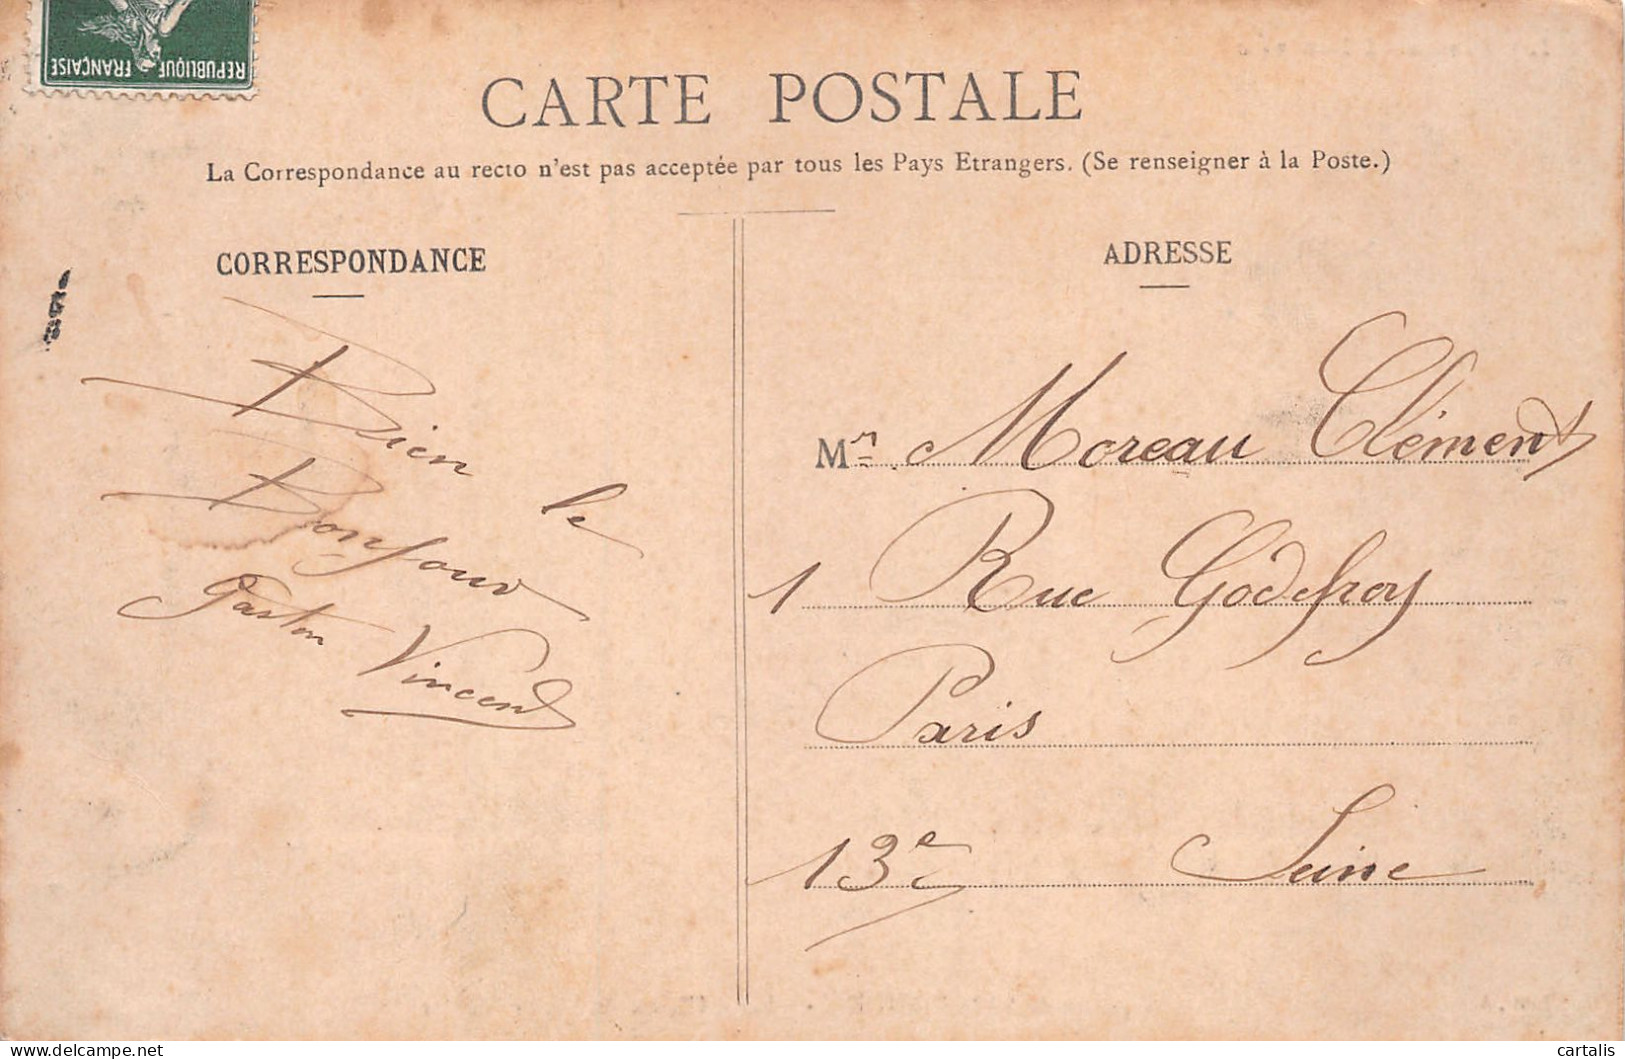 REPUBLIQUE FRANÇAISE
CARTE POSTALE
La Correspondance au recto n'est pas acceptée par tous les Pays Etrangers. (Se renseigner à la Poste.)
CORRESPONDANCE
Bien le
Bonjour
Gaston
Vincend
ADRESSE
Mr Moreau Clément
1 Rue Godefroy
Paris
13e Seine
www.delcampe.net
cartalis